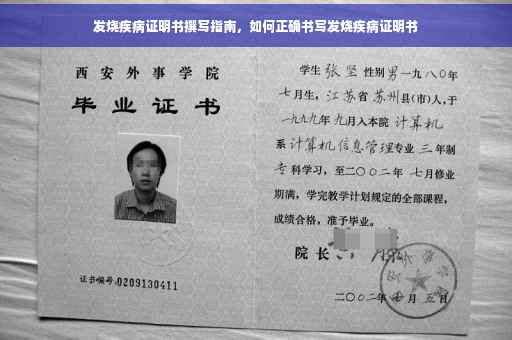 发烧疾病证明书撰写指南，如何正确书写发烧疾病证明书
西安外事学院
毕业证书
证书编号:0209130411
学生 张坚 性别 男 一九八〇年
七月生，江苏省 苏州县(市)人,于
一九九九年 九月入本院 计算机
系 计算机信息管理专业 三 年制
专科学习，至二〇〇二年 七月修业
期满，学完教学计划规定的全部课程，
成绩合格，准予毕业。
院长
二〇〇二年 七 月 五 日